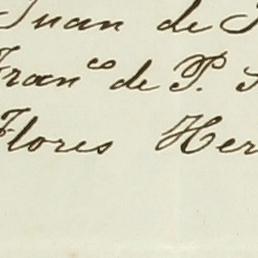 Juan de
Fran.co de P.
Flores Her